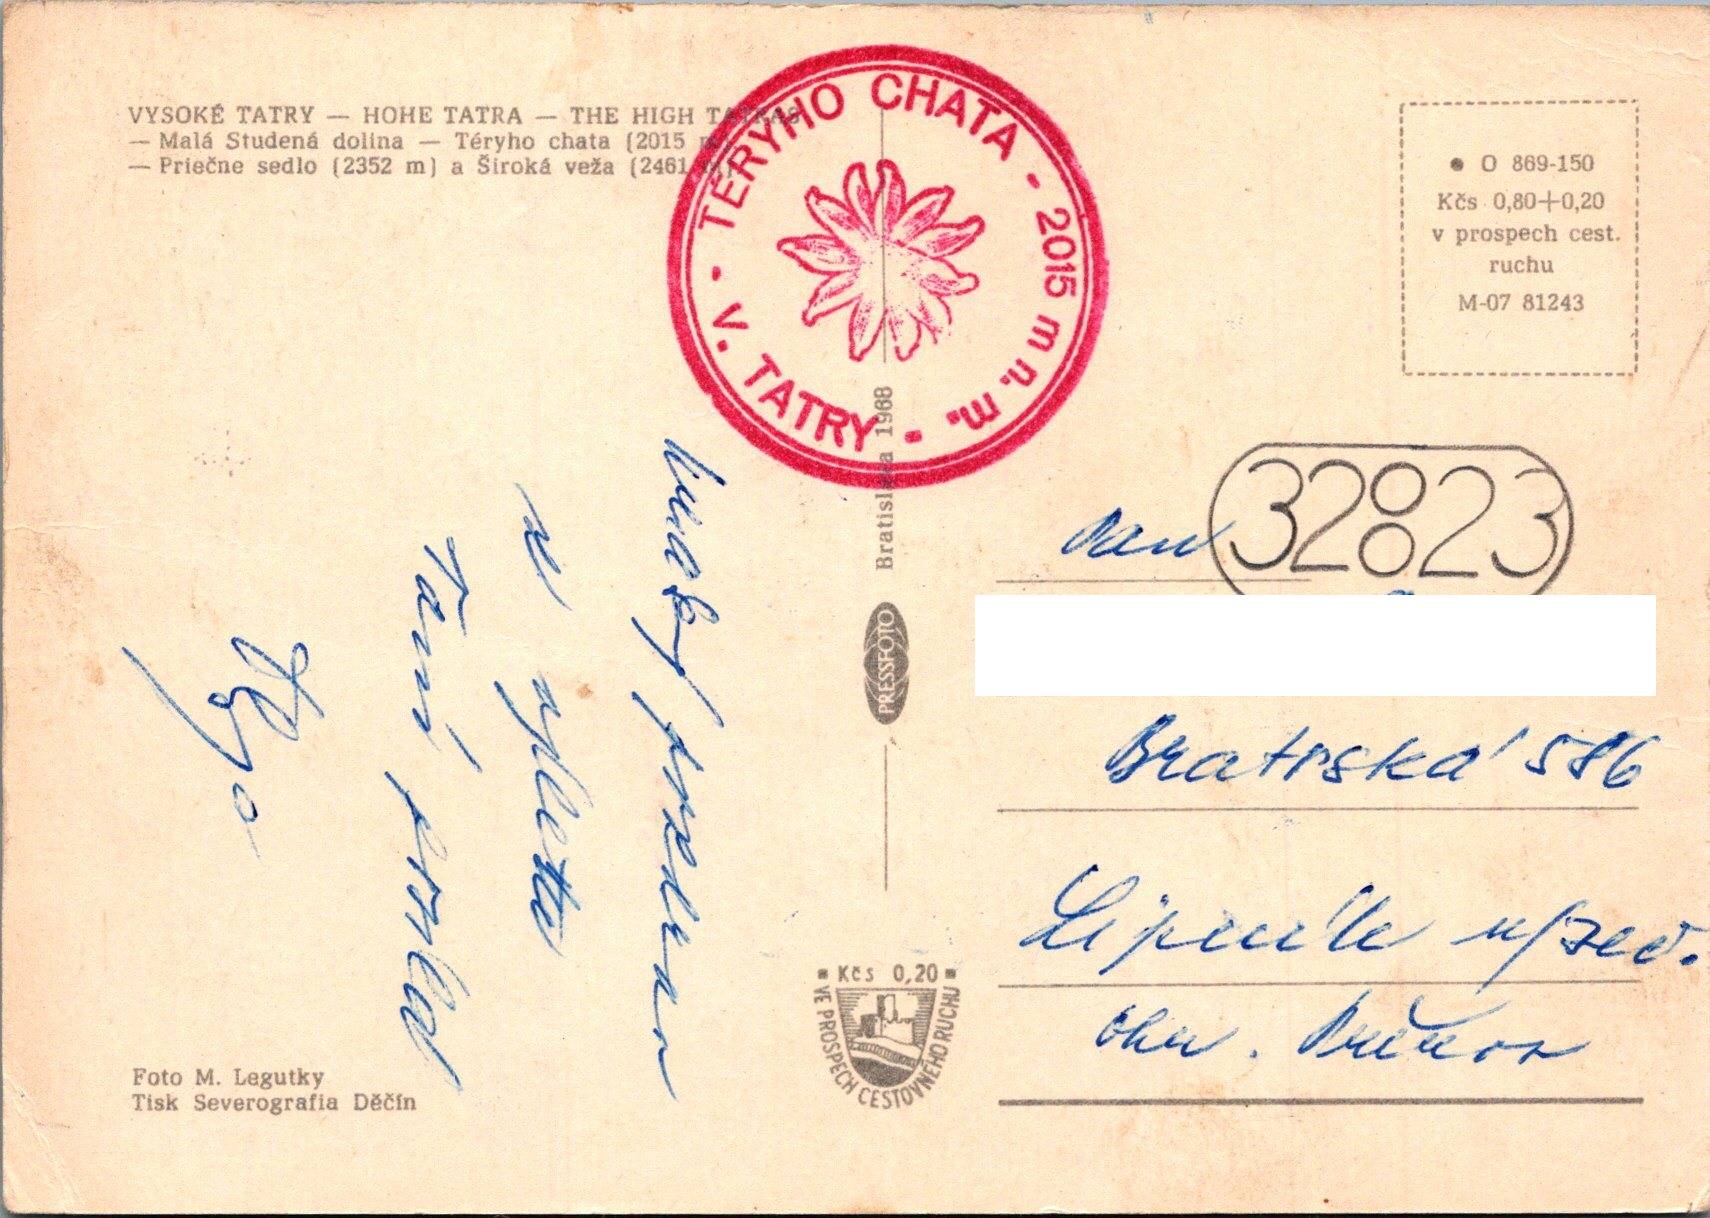 VYSOKÉ TATRY — HOHE TATRA — THE HIGH TATRAS
— Malá Studená dolina — Téryho chata (2015 m)
— Priečne sedlo (2352 m) a Široká veža (2461 m)
TÉRYHO CHATA - 2015 m n. m. - V. TATRY -
O 869-150
Kčs 0,80+0,20
v prospech cest.
ruchu
M-07 81243
32823
Bratislava 1968
PRESSFOTO
Pan
Bratrská 586
Lipník n/Beč.
okr. Přerov
z výletu
Tani
Kčs 0,20
VE PROSPĚCH CESTOVNÉHO RUCHU
Foto M. Legutky
Tisk Severografia Děčín